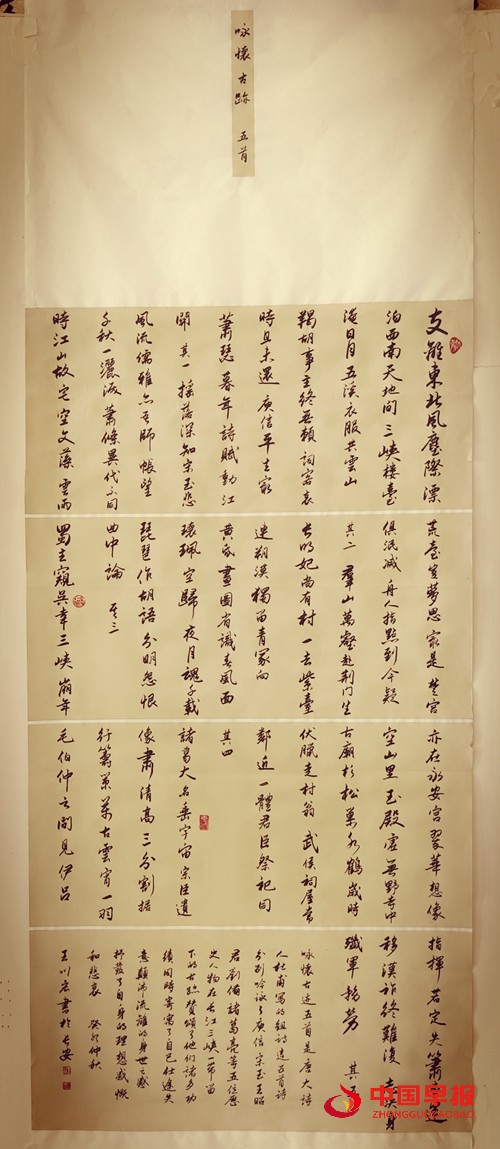 咏懷古跡 五首
支離東北風塵際漂
泊西南天地間三峡楼臺
淹日月五溪衣服共雲山
羯胡事主終無賴詞客哀
時且未還庾信平生最
蕭瑟暮年詩賦動江
關 其一 摇落深知宋玉悲
風流儒雅亦吾師悵望
千秋一灑淚蕭條異代不同
時江山故宅空文藻雲雨
荒臺豈夢思最是楚宫
俱泯滅舟人指點到今疑
其二 羣山萬壑赴荆门生
长明妃尚有村一去紫臺
連朔漠獨留青冢向
黄昏畫圖省識春風面
環珮空歸夜月魂千載
琵琶作胡語分明怨恨
曲中論 其三
蜀主窺吳幸三峡崩年
亦在永安宫翠華想像
空山里玉殿虚無野寺中
古廟杉松巢水鶴歲時
伏臘走村翁武侯祠屋常
鄰近一體君臣祭祀同
其四
諸葛大名垂宇宙宗臣遺
像肅清高三分割据
纡籌策萬古雲霄一羽
毛伯仲之間見伊吕
指揮若定失蕭曹運
移漢祚終難復志决身
殲軍務勞 其五
咏懷古迹五首是唐大詩
人杜甫寫的组詩這五首詩
分别吟咏了庾信宋玉王昭
君劉備諸葛亮等五位歷
史人物在长江三峡一带留
下的古跡赞頌了他们諸多功
績同時寄寓了自己仕途失
意颠沛流離的身世之感
抒發了自身的理想感慨
和悲哀 癸卯仲秋
王川宏書於长安
中国早报
ZHONGGUOZAOBAO